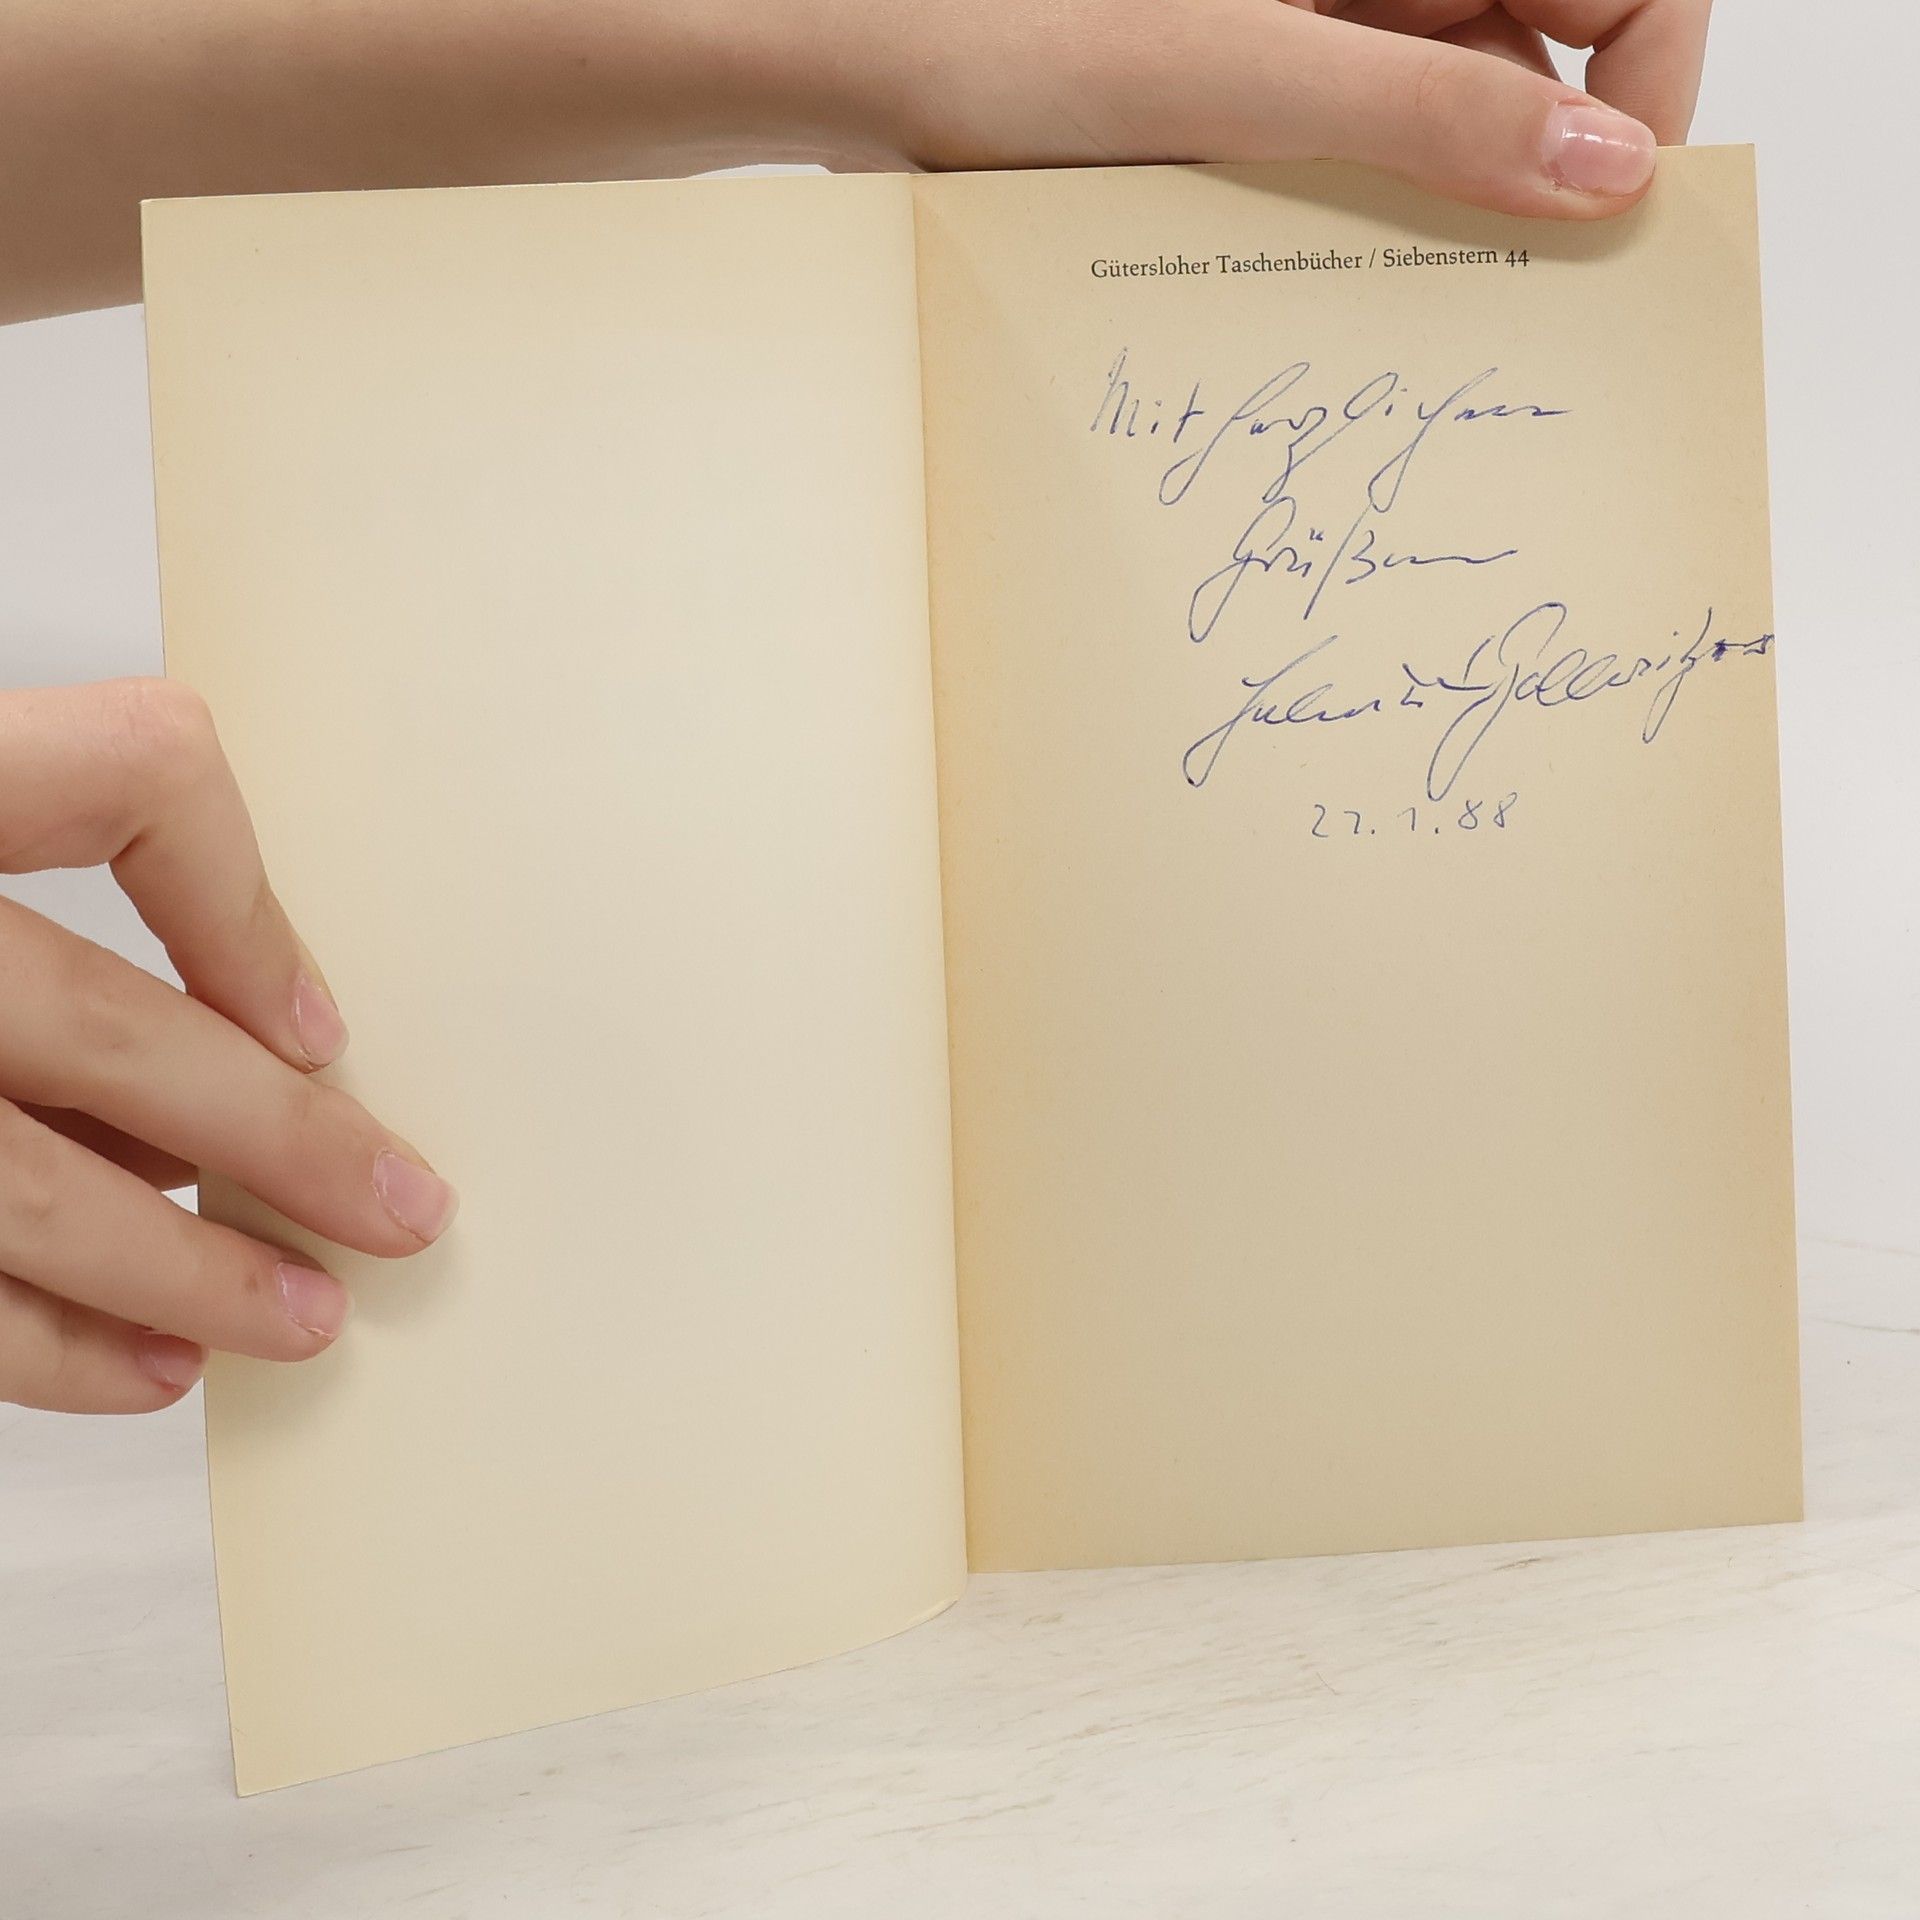 Gütersloher Taschenbücher / Siebenstern 44
Mit herzlichen
Grüßen
Helmut Gollwitzer
27.1.88